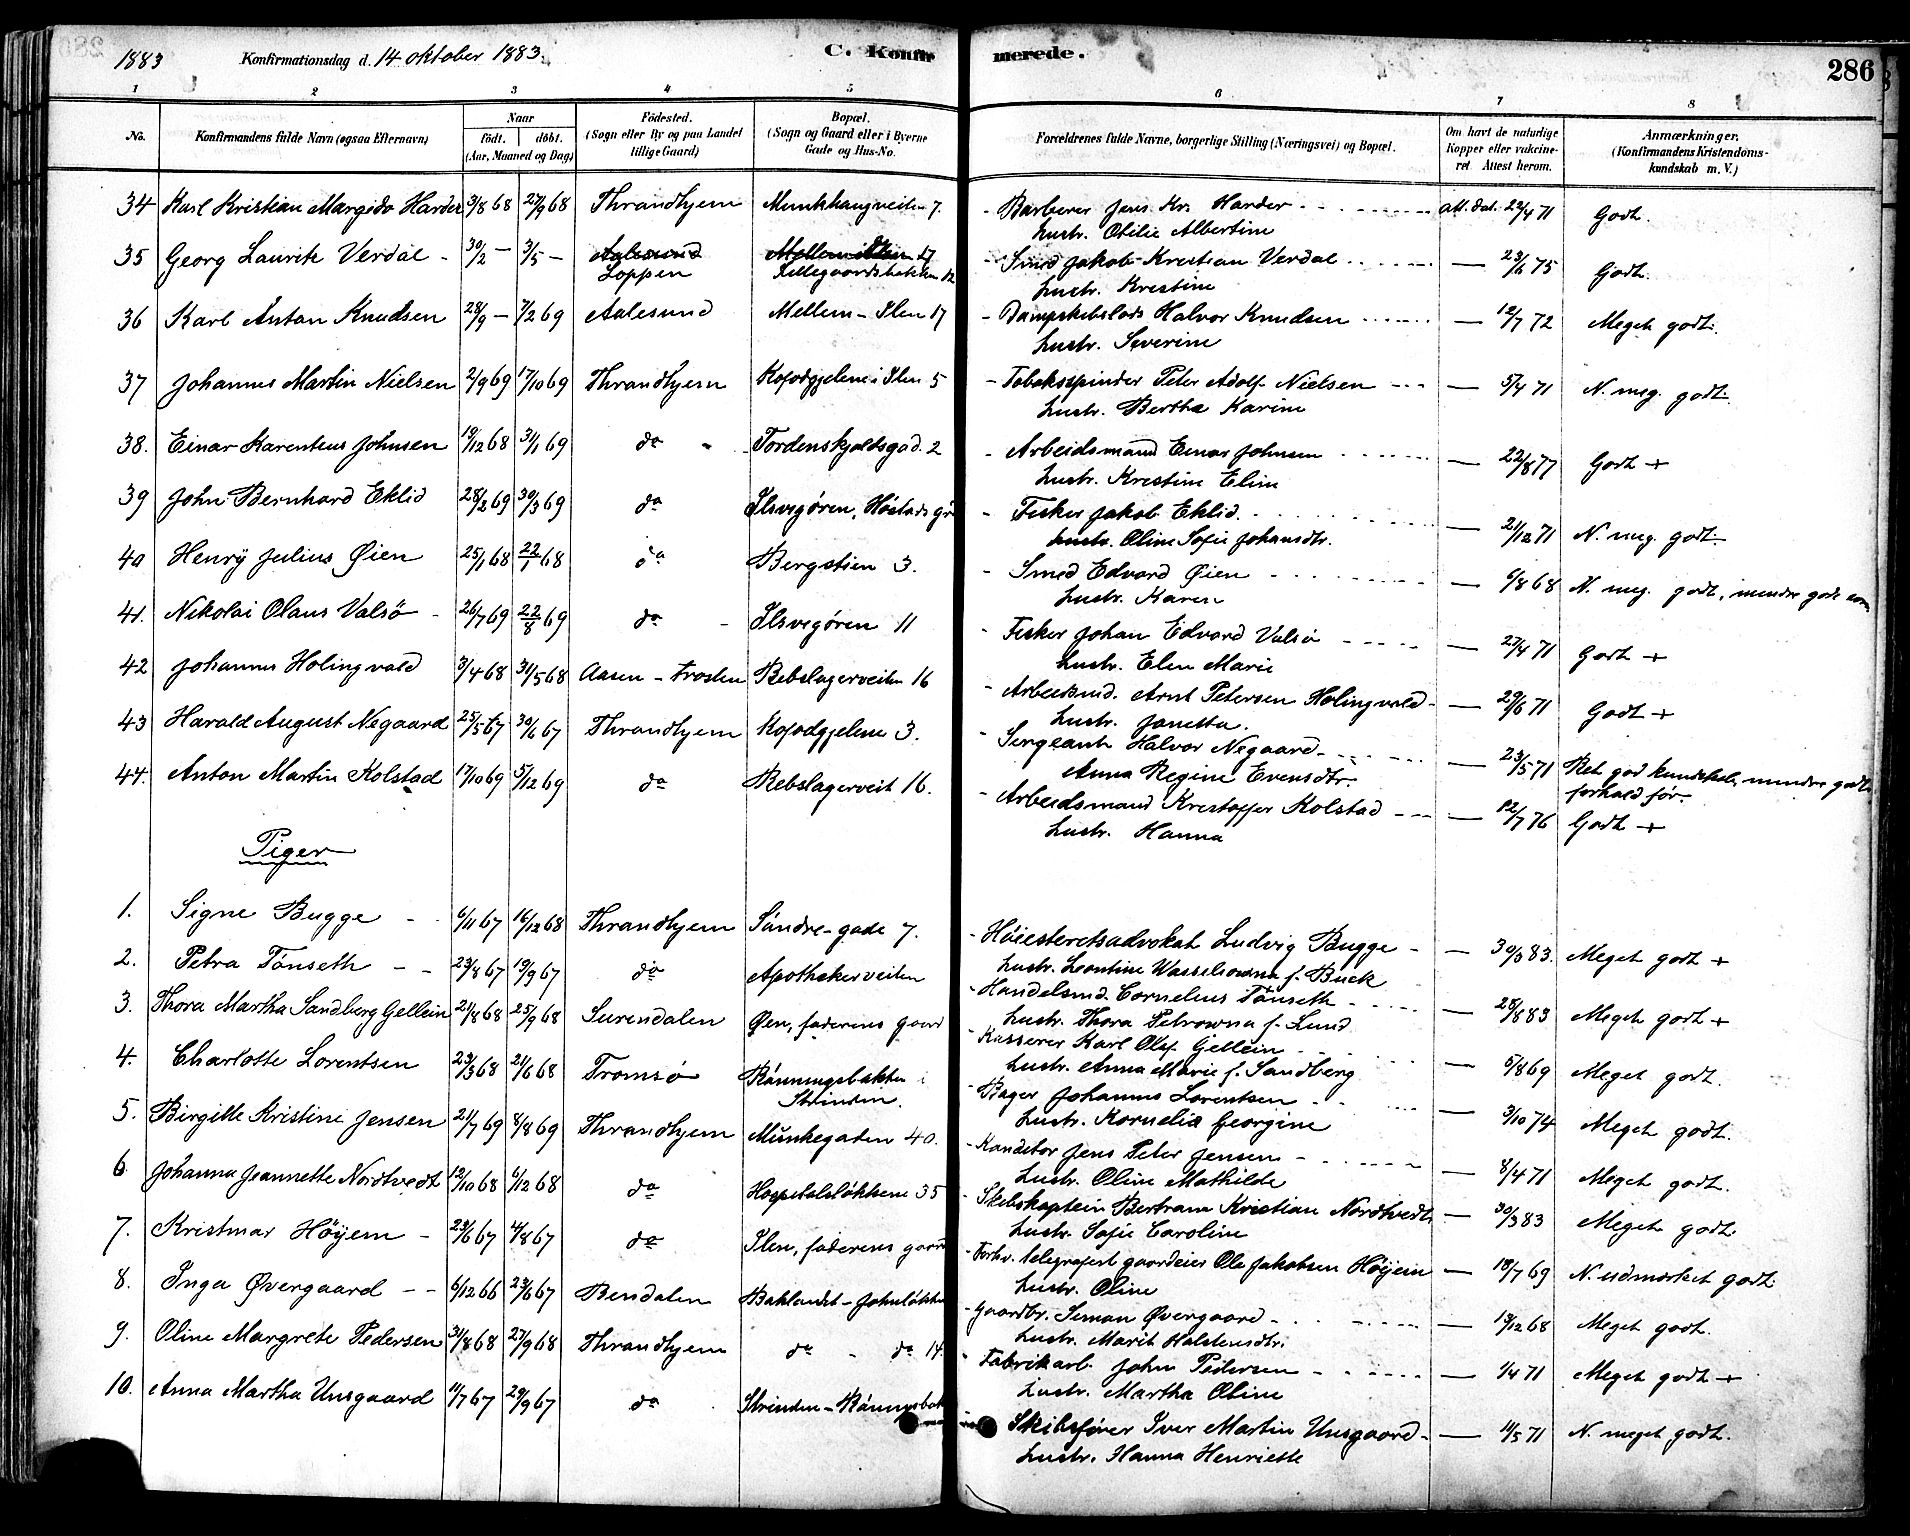 1883 Konfirmationsdag d. 14 oktober 1883. C. Konfir merede. 286
1 2 3 4 5 6 7 8
No. Konfirmandens fulde Navn (ogsaa Efternavn) Naar Födt. döbt. (Aar, Maaned og Dag) Födested. (Sogn eller By og paa Landet tillige Gaard) Bopæl. (Sogn og Gaard eller i Byerne Gade og Hus-No. Forældrenes fulde Navne, borgerlige Stilling (Næringsvei) og Bopæl. Om havt de naturlige Kopper eller vakcineret Attest herom. Anmærkninger. (Konfirmandens Kristendomskundskab m. V.)
34 Karl Kristian Margido Harder 3/8 68 27/9 68 Thrandhjem Munkhaugveiten 7. - Barberer Jens Kr. Harder att. dat. 22/4 71 Godt.
hustr. Otilie Albertine
35 Georg Laurits Verdal - 30/2 - 3/5 - Aalesund Mellem Ilen 17 - Smed Jakob Kristian Verdal — 23/6 75 Godt.
Loppen Tellegaardsbakken 12 hustr. Kristine
36 Karl Anton Knudsen 28/9 - 7/2 69 Aalesund Mellem-Ilen 17 - Dampskibslods Halvor Knudsen — 12/7 72 Meget godt.
hustr. Severine
37 Johannes Martin Nielsen 2/9 69 17/10 69 Thrandhjem Kofodgjelene i Ilen 5 - Tobaksspinder Peter Adolf Nielsen — 5/4 71 N. meg. godt.
hustr. Bertha Karine
38. Einar Karentius Johnsen 19/12 68 31/1 69 do Tordenskjoldsgad. 2 - Arbeidsmand Einar Johnsen — 22/8 77 Godt +
hustr. Kristine Eline
39 John Bernhard Eklid 28/2 69 30/3 69 do Ilsvigören, Höstads g - Fisker Jakob Eklid. — 21/12 71 N. meg. godt.
hustr. Oline Sofie Johansdtr.
40 Henry Julius Øien 25/1 68 22/1 68 do Bergstien 3. - Smed Edvard Øien — 6/8 68 N. meg. godt, mindre godt
hustr. Karen
41. Nikolai Olaus Valsö - 26/7 69 22/8 69 do Ilsvigören 11 - Fisker Johan Edvard Valsö — 27/4 71 Godt +
hustr. Elen Marie
42 Johannes Holingvald 3/4 68 31/5 68 Aasen - Frosten Rebslagerveiten 16 - Arbeidsmd. Arnt Petersen Holingvald — 29/6 71 Godt +
hustr. Janetta.
43 Harald August Negaard 25/5 67 30/6 67 Thrandhjem Kofodgjelene 3. - Sergeant Halvor Negaard — 23/5 71 Ret god kundskab, mindre godt
Anna Regine Evensdtr. forhold för.
44. Anton Martin Kolstad 17/10 69 5/12 69 do Rebslagerveit 16. - Arbeidsmand Kristoffer Kolstad — 12/7 76 Godt +
hustr. Hanna
Piger
1. Signe Bugge - 6/11 67 16/12 68 Thrandhjem Söndre-gade 7. - Höiesteretsadvokat Ludvig Bugge — 30/3 83. Meget godt +
hustr. Leontine Wasseliowna f. Buck
2. Petra Tönseth - - 23/8 67 19/9 67 do Apothekerveiten - Handelsmd. Cornelius Tönseth — 28/8 83 Meget godt +
hustr. Thora Petrowna f. Lund
3. Thora Martha Sandberg Gellein 21/8 68 25/9 68 Surendalen Øen, faderens gaard - Kasserer Karl Olaf Gellein — 5/8 69 Meget godt.
hustr. Anna Marie f. Sandberg
4. Charlotte Lorentsen 23/3 68 21/6 68 Tromsö Rönningsbakken i - Bager Johannes Lorentsen — 3/10 74 Meget godt.
Strinden. hustr. Kornelia Georgine
5. Birgitte Kristine Jensen 21/7 69 8/8 69 Thrandhjem Munkegaden 40. - Konditor Jens Peter Jensen — 8/4 71 Meget godt.
hustr. Oline Mathilde
6. Johanna Jeannette Nordtvedt 12/10 68 6/12 68 do Hospitalslökkene 35 - Skibskaptein Bertram Kristian Nordtvedt — 30/3 83 Meget godt.
hustr. Sofie Caroline
7. Kristmar Höyem - 23/6 67 4/8 67 do Ilen, faderens gaard - Forhv. telegrafist gaardeier Ole Jakobsen Höyem — 18/7 69 N. udmærket godt.
hustr. Oline
8. Inga Øvergaard - - 6/12 66 23/6 67 Bendalen Baklandet-Johnlökken - Gaardbr. Simon Øvergaard — 19/12 68 Meget godt.
hustr. Marit Halstensdtr.
9. Oline Margrete Pedersen 31/8 68 27/9 68 Thrandhjem do - do 14. - Fabrikarb. John Pedersen — 1/4 71 Meget godt +
hustr. Martha Oline
10. Anna Martha Unsgaard 11/7 67 29/9 67 do Strinden-Rönningsbak - Skibsförer Iver Martin Unsgaard — 11/5 71 N. meget godt.
hustr. Hanna Henriette